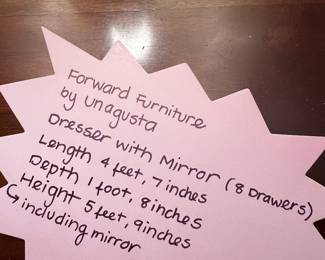 Forward Furniture
by unagusta
Dresser with Mirror (8 Drawers)
Length 4 feet, 7 inches
Depth 1 foot, 8 inches
Height 5 feet, 9 inches
↳ including mirror